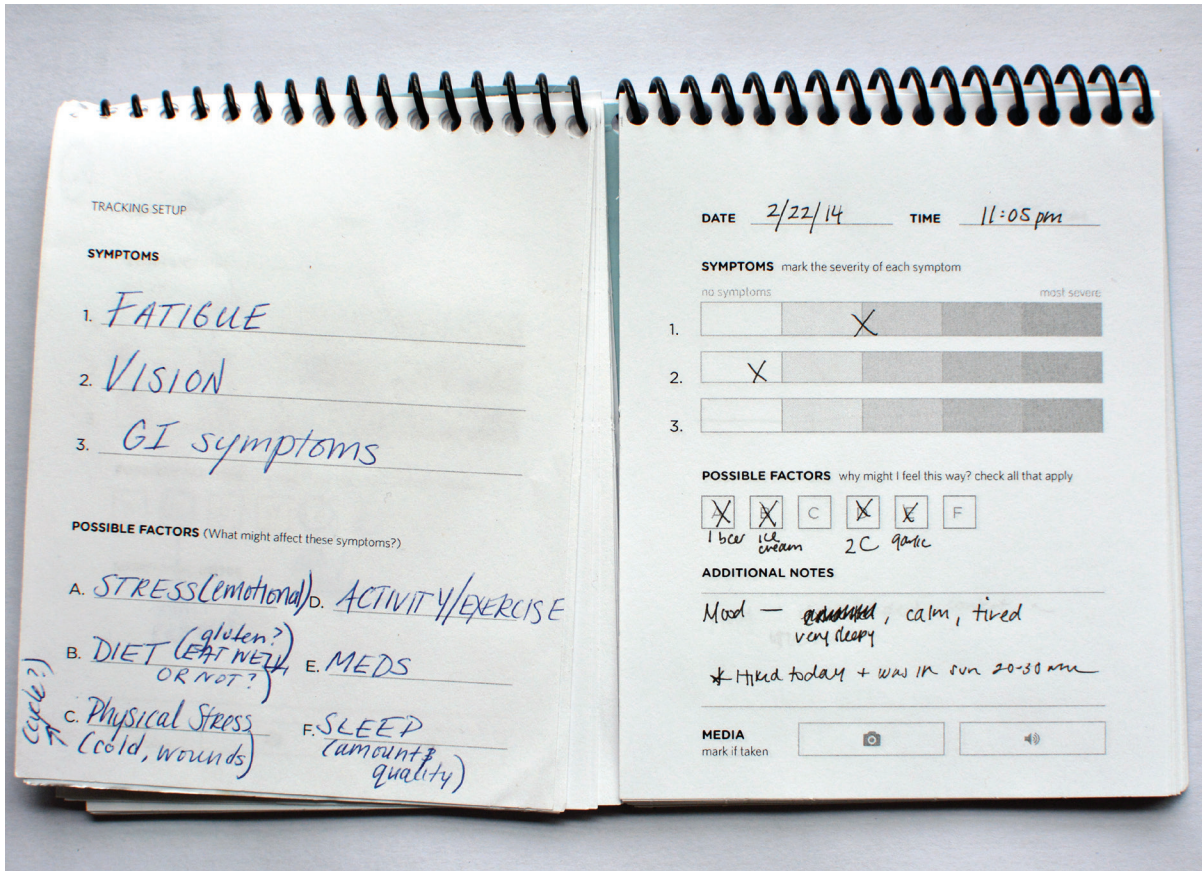 TRACKING SETUP
SYMPTOMS
1. FATIGUE
2. VISION
3. GI symptoms
POSSIBLE FACTORS (What might affect these symptoms?)
A. STRESS (emotional)
B. DIET (gluten?
EAT WELL
OR NOT?)
(cycle?)
C. Physical Stress
(cold, wounds)
D. ACTIVITY/EXERCISE
E. MEDS
F. SLEEP
(amount &
quality)
DATE 2/22/14 TIME 11:05 pm
SYMPTOMS mark the severity of each symptom
no symptoms most severe
1. X
2. X
3.
POSSIBLE FACTORS why might I feel this way? check all that apply
A B C D E F
1 beer ice cream 2C garlic
ADDITIONAL NOTES
Mood — , calm, tired
very sleepy
* Hiked today + was in sun 20-30 min
MEDIA
mark if taken